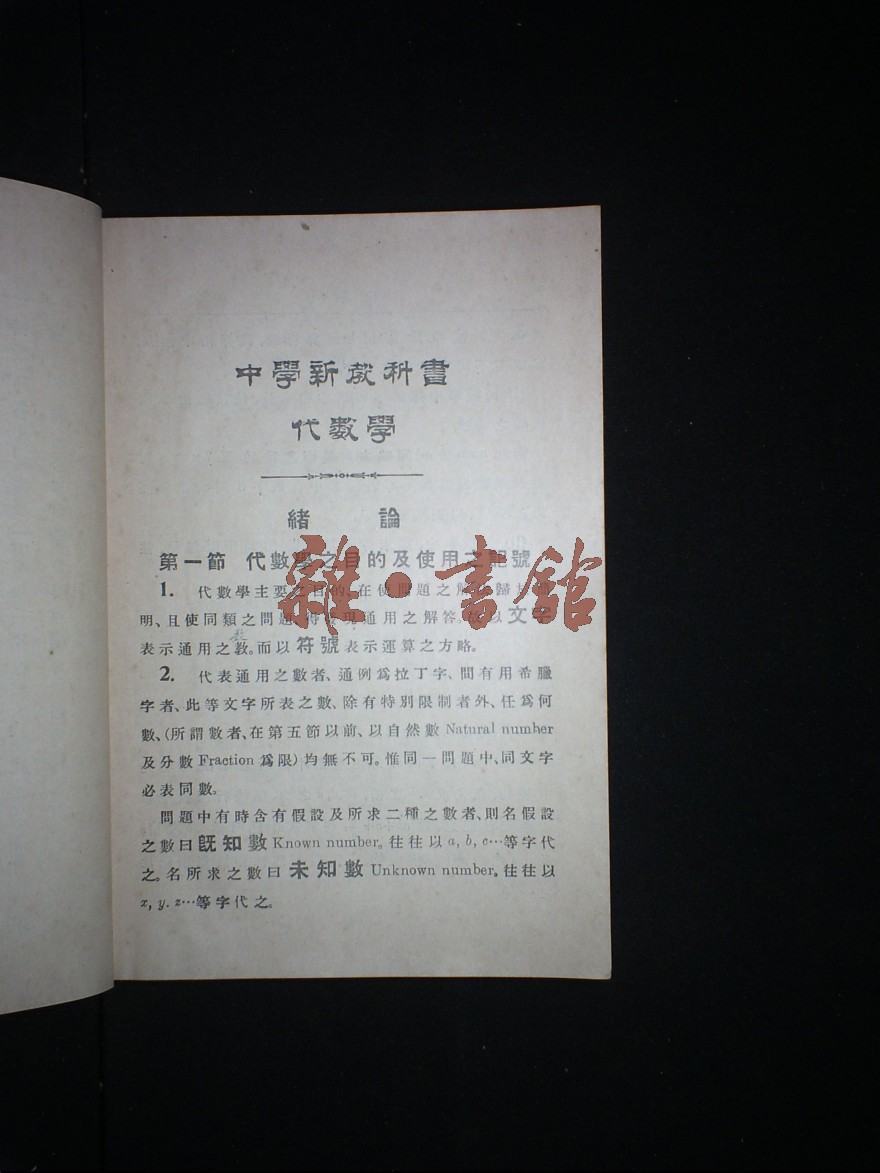 中學新教科書
代數學
緒 論
第一節 代數學之目的及使用之記號
1. 代數學主要之目的、在使問題之解
明、且使同類之問題、得發現通用之解答。以文字
表示通用之数。而以符號表示運算之方略。
2. 代表通用之數者、通例爲拉丁字、間有用希臘
字者、此等文字所表之數、除有特別限制者外、任爲何
數、(所謂數者、在第五節以前、以自然數 Natural number
及分數 Fraction 爲限)均無不可。惟同一問題中、同文字
必表同數。
問題中有時含有假設及所求二種之數者、則名假設
之數曰既知數 Known number。往往以 a, b, c…等字代
之。名所求之數曰未知數 Unknown number。往往以
x, y. z…等字代之。
雜·書館